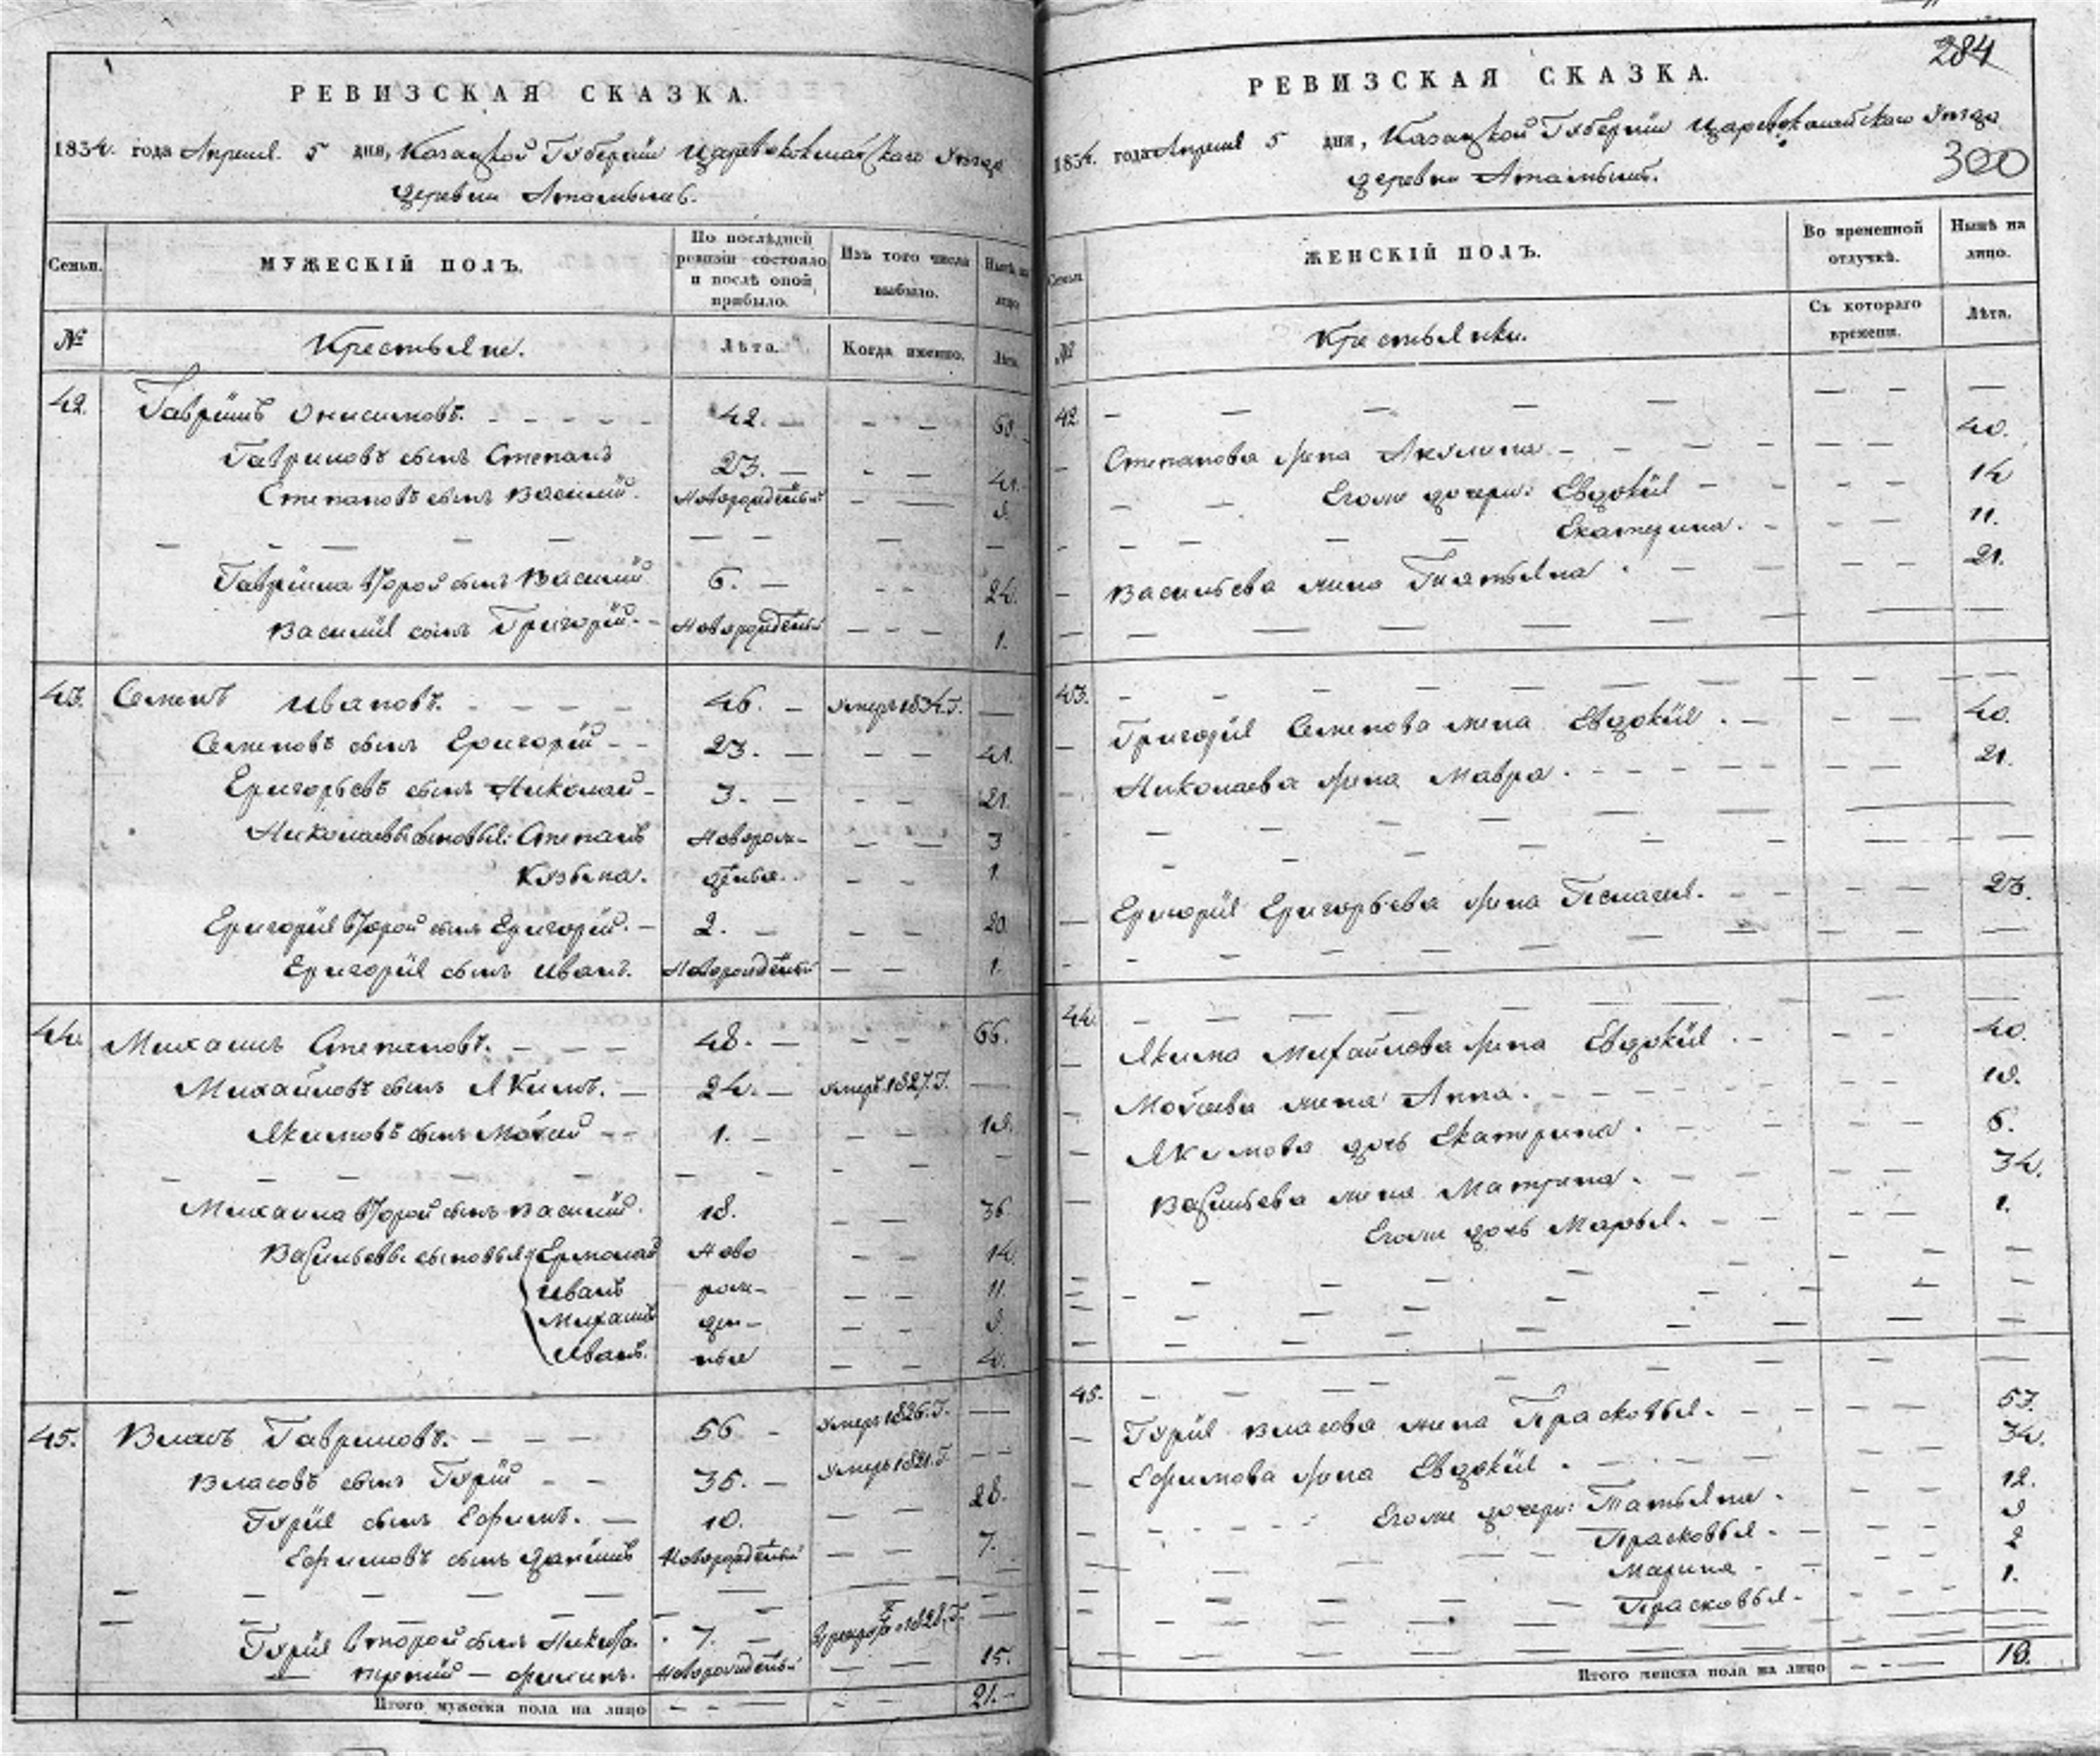 РЕВИЗСКАЯ СКАЗКА.
1834 года Апреля 5 дня, Казанской Губернии Царевококшайскаго Уезда
деревни
Семьи.
МУЖЕСКІЙ ПОЛЪ.
По последней ревизіи состояло и после оной прибыло.
Изъ того числа выбыло.
Ныне на лицо
№
Крестьяне.
Лета.
Когда именно.
Лета.
42. Гаврилъ Онисимовъ. 42.
Гавриловъ сынъ Степанъ 23. 41.
Степановъ сынъ Василий Новорожденный 9.
Гаврила второй сынъ Василий 6. 24.
Василія сынъ Григорій Новорожденный 1.
43. Семенъ Ивановъ. 46. умеръ 1834.Г.
Семеновъ сынъ Григорій 23. 41.
Григорьевъ сынъ Николай 3. 21.
Николаевы сыновья: Степанъ Новорож- 3
Кузьма. денные. 1.
Григорія второй сынъ Григорій. 2. 20.
Григорія сынъ Иванъ. Новорожденный 1.
44. Михаилъ Степановъ. 48. 66.
Михайловъ сынъ Якимъ. 24. умеръ 1827.Г.
Якимовъ сынъ Мойсей 1. 19.
Михаила второй сынъ Василий. 18. 36.
Васильевы сыновья Ермолай Ново 14.
Иванъ рож- 11.
Михаилъ ден- 9
Иванъ. ные 4.
45. Власъ Гавриловъ. 56 умеръ 1826.Г.
Власовъ сынъ Гурій 35. умеръ 1821.Г.
Гурія сынъ Ефимъ. 10. 28.
Ефимовъ сынъ Данилъ Новорожденный 7.
Гурія второй сынъ Никита. 7. 1828.Г.
третий — Филипъ. Новорожденный 15.
Итого мужеска пола на лицо 21.
284
РЕВИЗСКАЯ СКАЗКА.
1834 года Апреля 5 дня, Казанской Губернии Царевококшайскаго Уезда
300
деревни
Семьи
ЖЕНСКІЙ ПОЛЪ.
Во временной отлучкѣ.
Нынѣ на лицо.
№
Крестьянки.
Съ котораго времени.
Лѣта.
42.
Степанова жена Акулина 40.
Егоже дочери: Евдокія 14
Екатерина. 11.
Васильева жена Татьяна 21.
43.
Григорія Семенова жена Евдокія. 40.
Николаева жена Мавра. 21.
Григорія Григорьева жена Пелагея. 23.
44.
Якима Михайлова жена Евдокія 40.
Мойсеева жена Анна. 19.
Якимова дочь Екатерина. 6.
Васильева жена Матрена. 34.
Егоже дочь Марья. 1.
45.
Гурія Власова жена Прасковья. 53.
Ефимова жена Евдокія. 34.
Егоже дочери: Татьяна. 12.
Прасковья. 9
Марина 2
Прасковья. 1.
Итого женска пола на лицо 18.